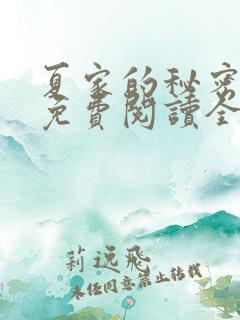 夏家的秘密
免費閱讀全
莉远飛
未经同意禁止转载